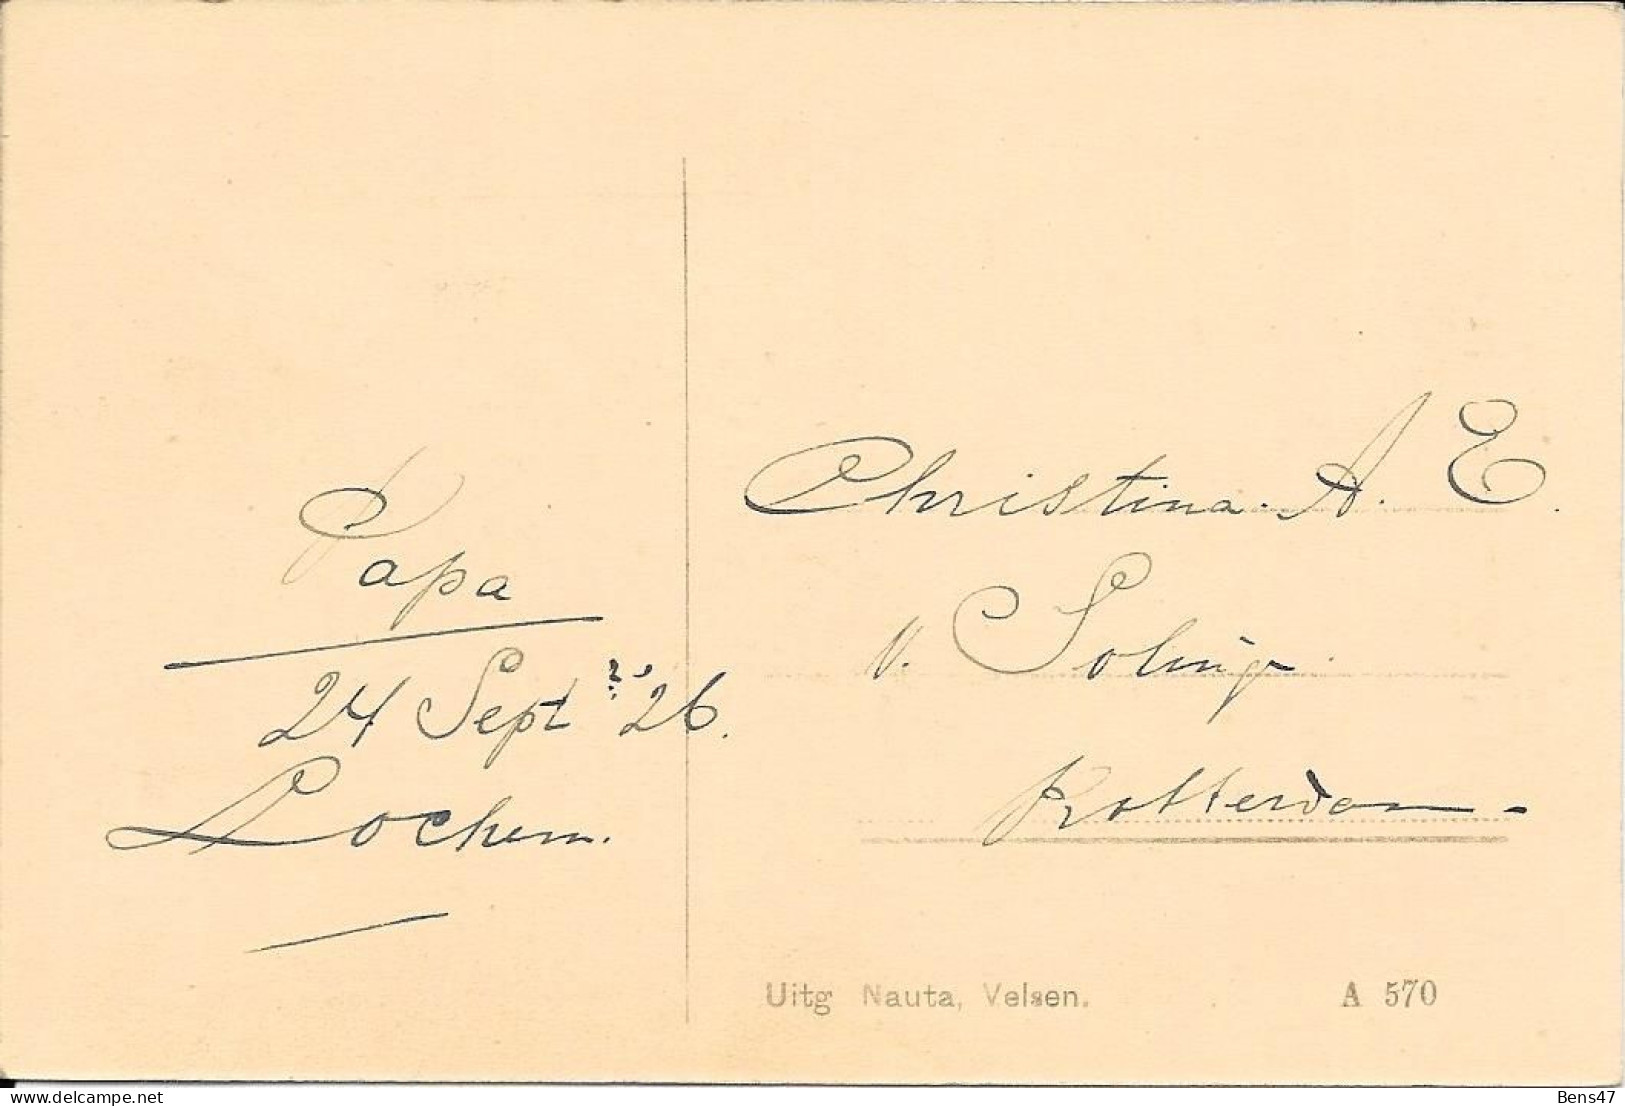 Papa
24 Sept '26.
Lochem.
Christina. A. E.
v. Solinge
Rotterdam
Uitg Nauta, Velsen. A 570
delcampe.net
Bens47